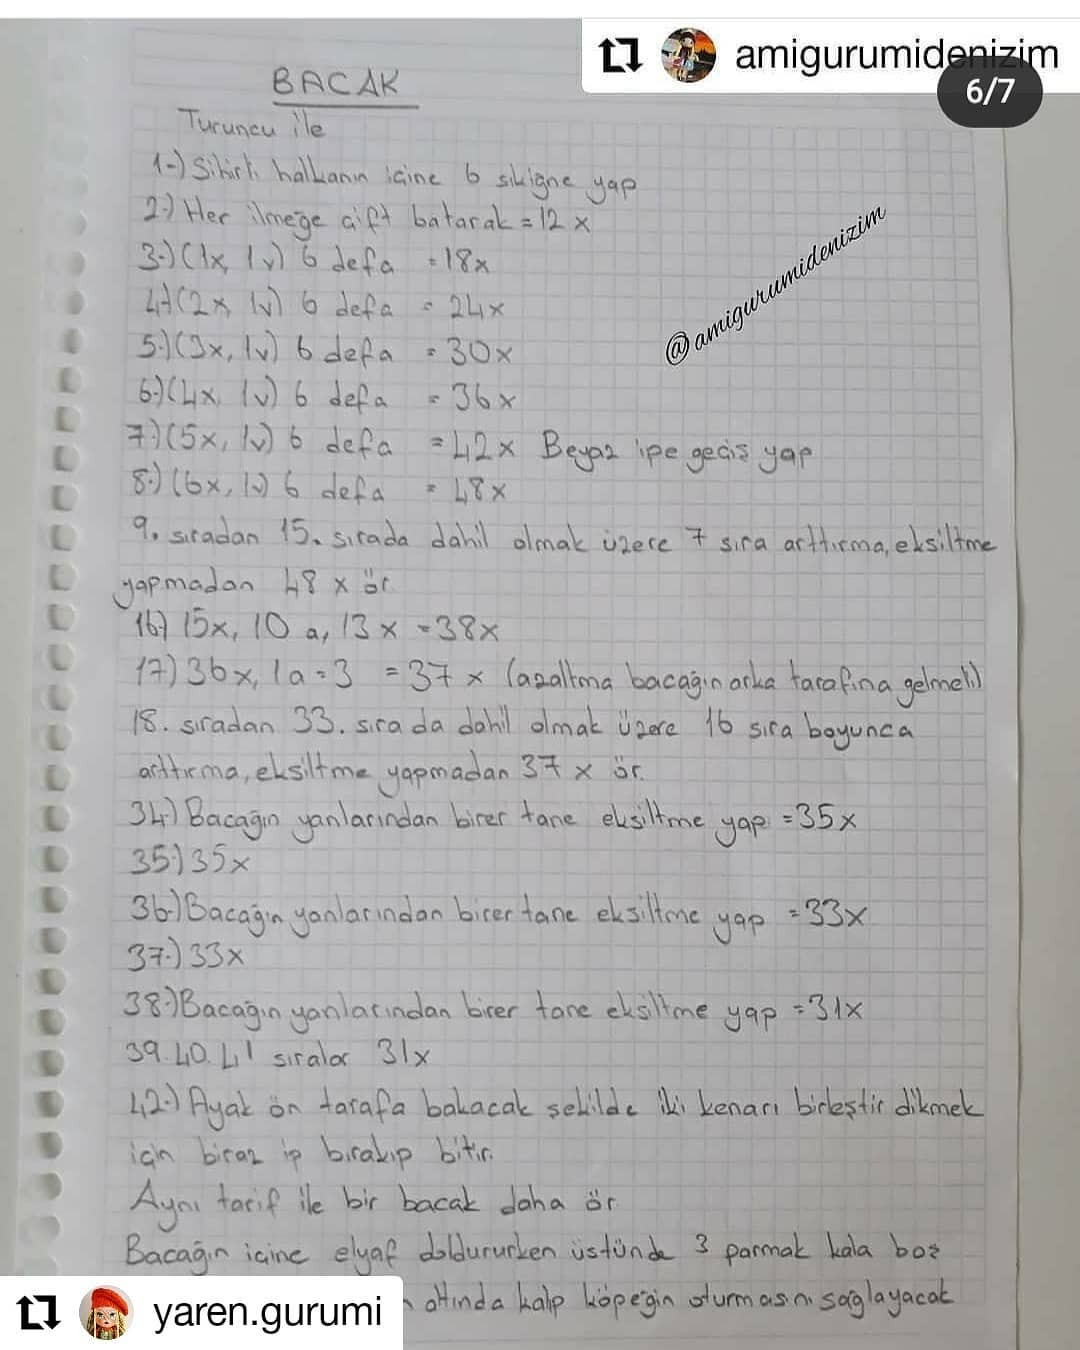 amigurumidenizim
6/7
BACAK
Turuncu ile
1-) Sihirli halkanın içine 6 sıkiğne yap
2-) Her ilmeğe çift batarak = 12 x
3-) (1x, 1v) 6 defa = 18x
4-) (2x, 1v) 6 defa = 24x
5-) (3x, 1v) 6 defa = 30x
6-) (4x, 1v) 6 defa = 36x
7-) (5x, 1v) 6 defa = 42x Beyaz ipe geçiş yap
8-) (6x, 1v) 6 defa = 48x
9. sıradan 15. sırada dahil olmak üzere 7 sıra arttırma, eksiltme
yapmadan 48 x ör.
16) 15x, 10 a, 13 x = 38x
17) 36x, 1a = 3 = 37 x (azaltma bacağın arka tarafına gelmeli)
18. sıradan 33. sıra da dahil olmak üzere 16 sıra boyunca
arttırma, eksiltme yapmadan 37 x ör.
34-) Bacağın yanlarından birer tane eksiltme yap = 35x
35-) 35x
36-) Bacağın yanlarından birer tane eksiltme yap = 33x
37-) 33x
38-) Bacağın yanlarından birer tane eksiltme yap = 31x
39. 40. 41 sıralar 31x
42-) Ayak ön tarafa bakacak şekilde iki kenarı birleştir dikmek
için biraz ip bırakıp bitir.
Aynı tarif ile bir bacak daha ör.
Bacağın içine elyaf doldururken üstünde 3 parmak kala boş
altında kalıp köpeğin oturmasını sağlayacak
@amigurumidenizim
yaren.gurumi